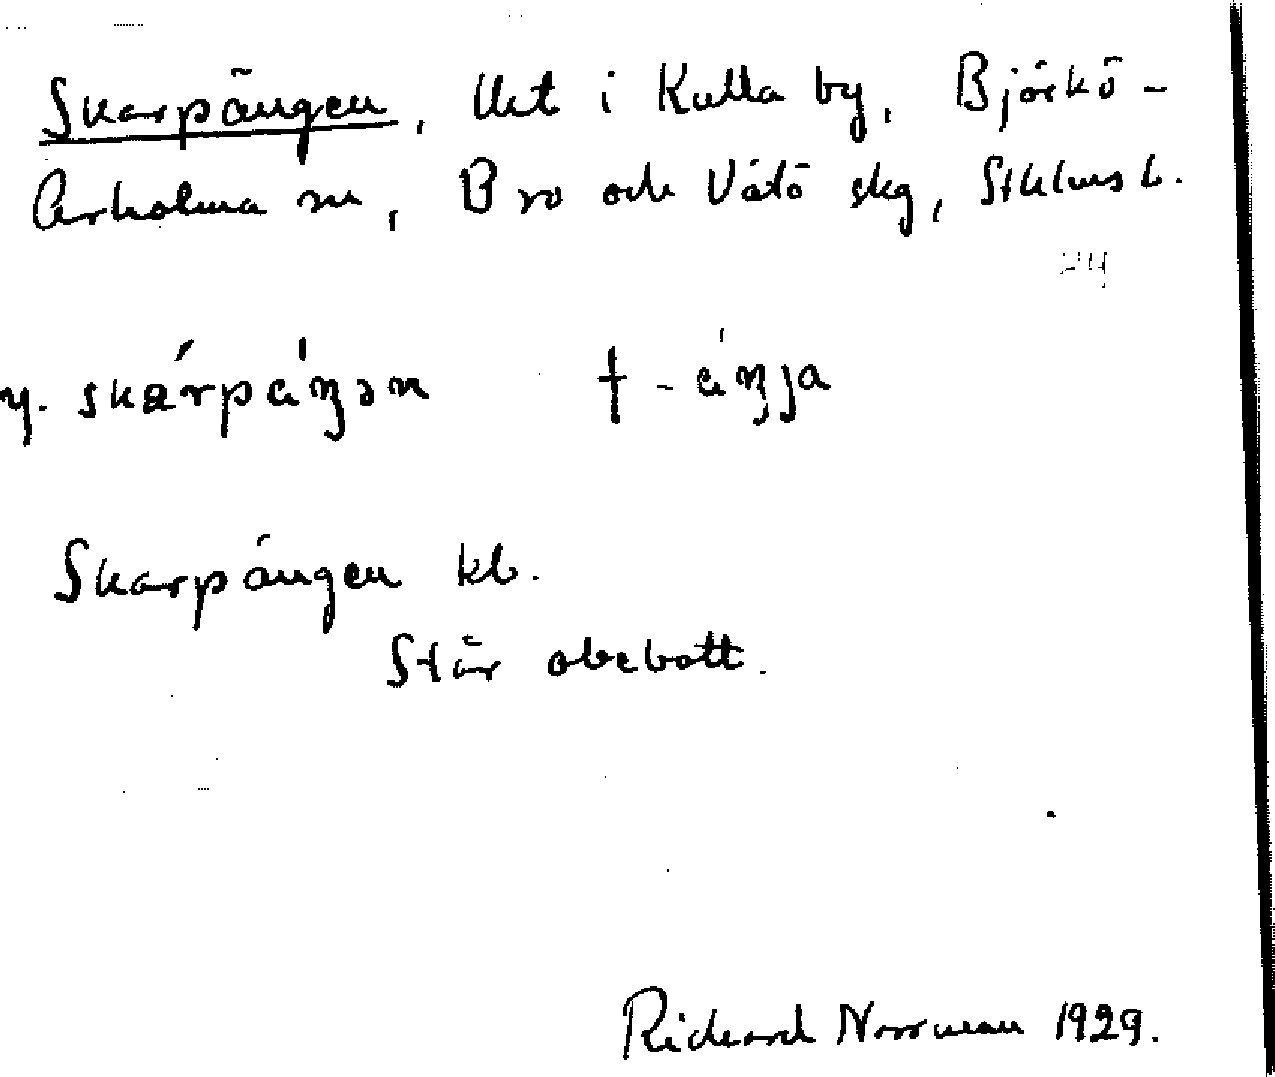 Skarpängen, lht i Kulla by, Björkö-
Arholma sn, Bro och Vätö skg, Sthlms l.
24
y. skárpáŋən † - áŋja
Skarpängen kb.
Står obebott.
Richard Norrman 1929.